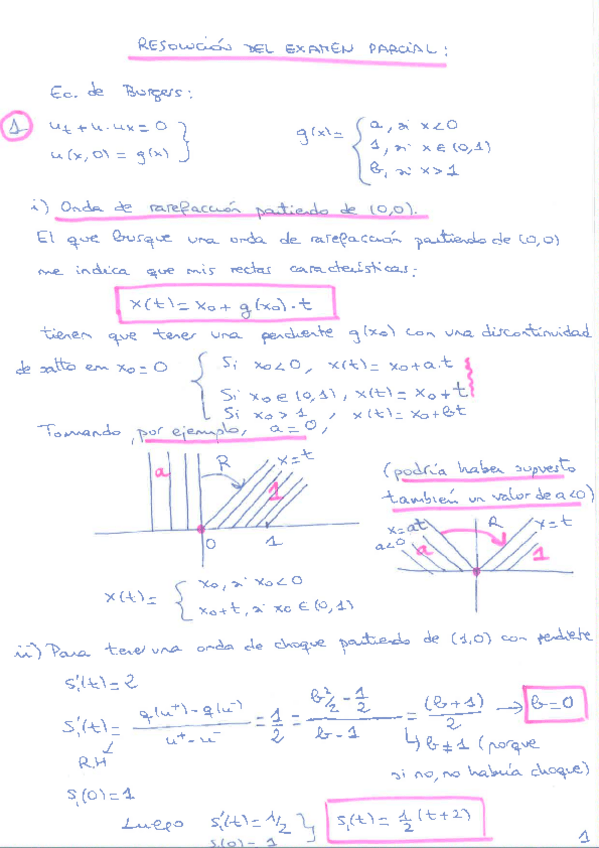 RESOLUCIÓN DEL EXAMEN PARCIAL:
Ec. de Burgers:
1 ut + u·ux = 0
u(x,0) = g(x)
g(x) = { a, si x<0
1, si x ∈ (0,1)
b, si x>1
i) Onda de rarefacción partiendo de (0,0).
El que busque una onda de rarefacción partiendo de (0,0)
me indica que mis rectas características:
x(t) = x0 + g(x0)·t
tienen que tener una pendiente g(x0) con una discontinuidad
de salto em x0=0 { Si x0<0, x(t) = x0+a·t
Si x0 ∈ (0,1), x(t) = x0+t
Si x0>1, x(t) = x0+bt
Tomando, por ejemplo, a=0,
a R x=t 1
0 1
(podría haber supuesto
también un valor de a<0)
x=at R x=t
a<0 a 1
x(t) = { x0, si x0<0
x0+t, si x0 ∈ (0,1)
ii) Para tener una onda de choque partiendo de (1,0) con pendiente
s1'(t)=2
s1'(t) = q(u+)-q(u-) / u+-u- = 1/2 = b²/2 - 1/2 / b-1 = (b+1)/2 → b=0
R.H
b≠1 (porque
si no, no habría choque)
s1(0)=1
Luego s1'(t)=1/2 } s1(t) = 1/2 (t+2)
s1(0)=1
1